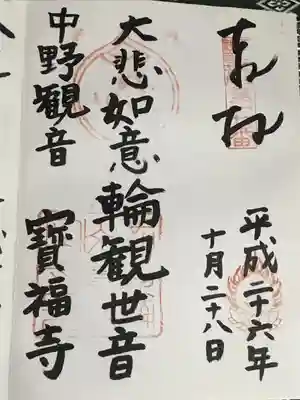 奉拝
平成二十六年
十月二十八日
大悲如意輪観世音
中野観音
寳福寺